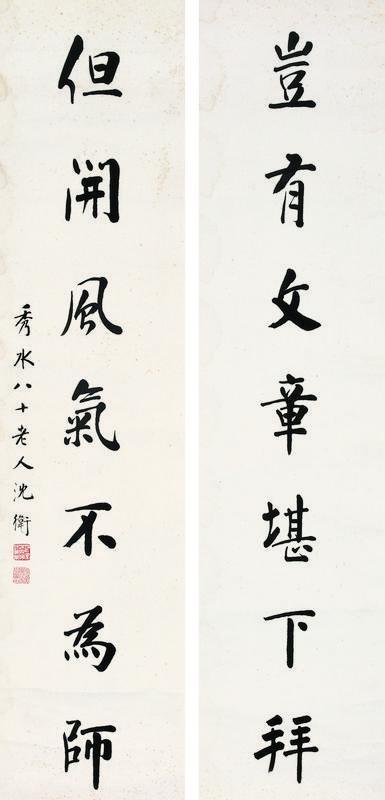 豈有文章堪下拜
但開風氣不為師
秀水八十老人沈衛